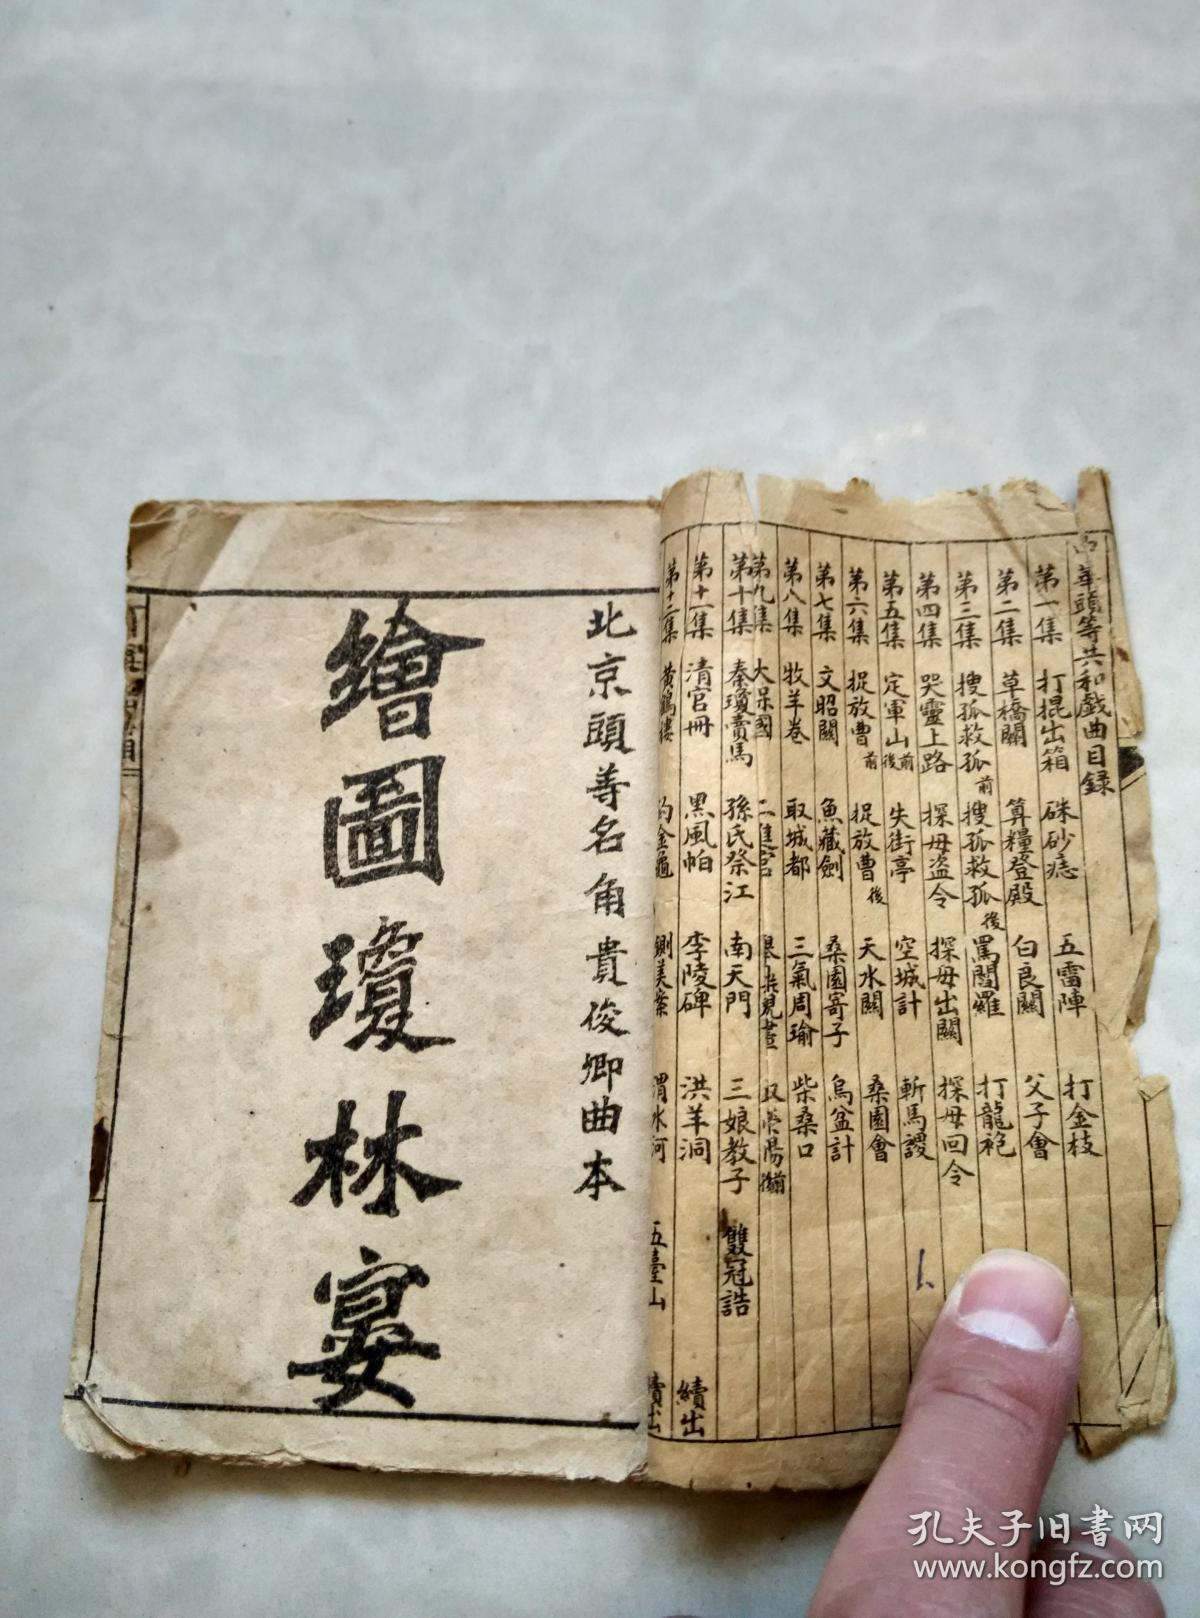 中華頭等共和戲曲目錄
第一集 打棍出箱 硃砂痣 五雷陣 打金枝
第二集 草橋關 算糧登殿 白良關 父子會
第三集 搜孤救孤前 搜孤救孤後 罵閻羅 打龍袍
第四集 哭靈上路 探母盗令 探母出關 探母回令
第五集 定軍山前後 失街亭 空城計 斬馬謖
第六集 捉放曹前 捉放曹後 天水關 桑園會
第七集 文昭關 魚藏劍 桑園寄子 烏盆計
第八集 牧羊卷 取城都 三氣周瑜 柴桑口
第九集 大保國 二進宮
第十集 秦瓊賣馬 孫氏祭江 南天門 三娘教子 雙冠誥
第十一集 清官冊 黑風帕 李陵碑 洪羊洞 續出
第十二集 黃鶴樓 釣金龜 鍘美案 渭水河 五臺山 續出
北京頭等名角貴俊卿曲本
繪圖瓊林宴
孔夫子旧书网
www.kongfz.com